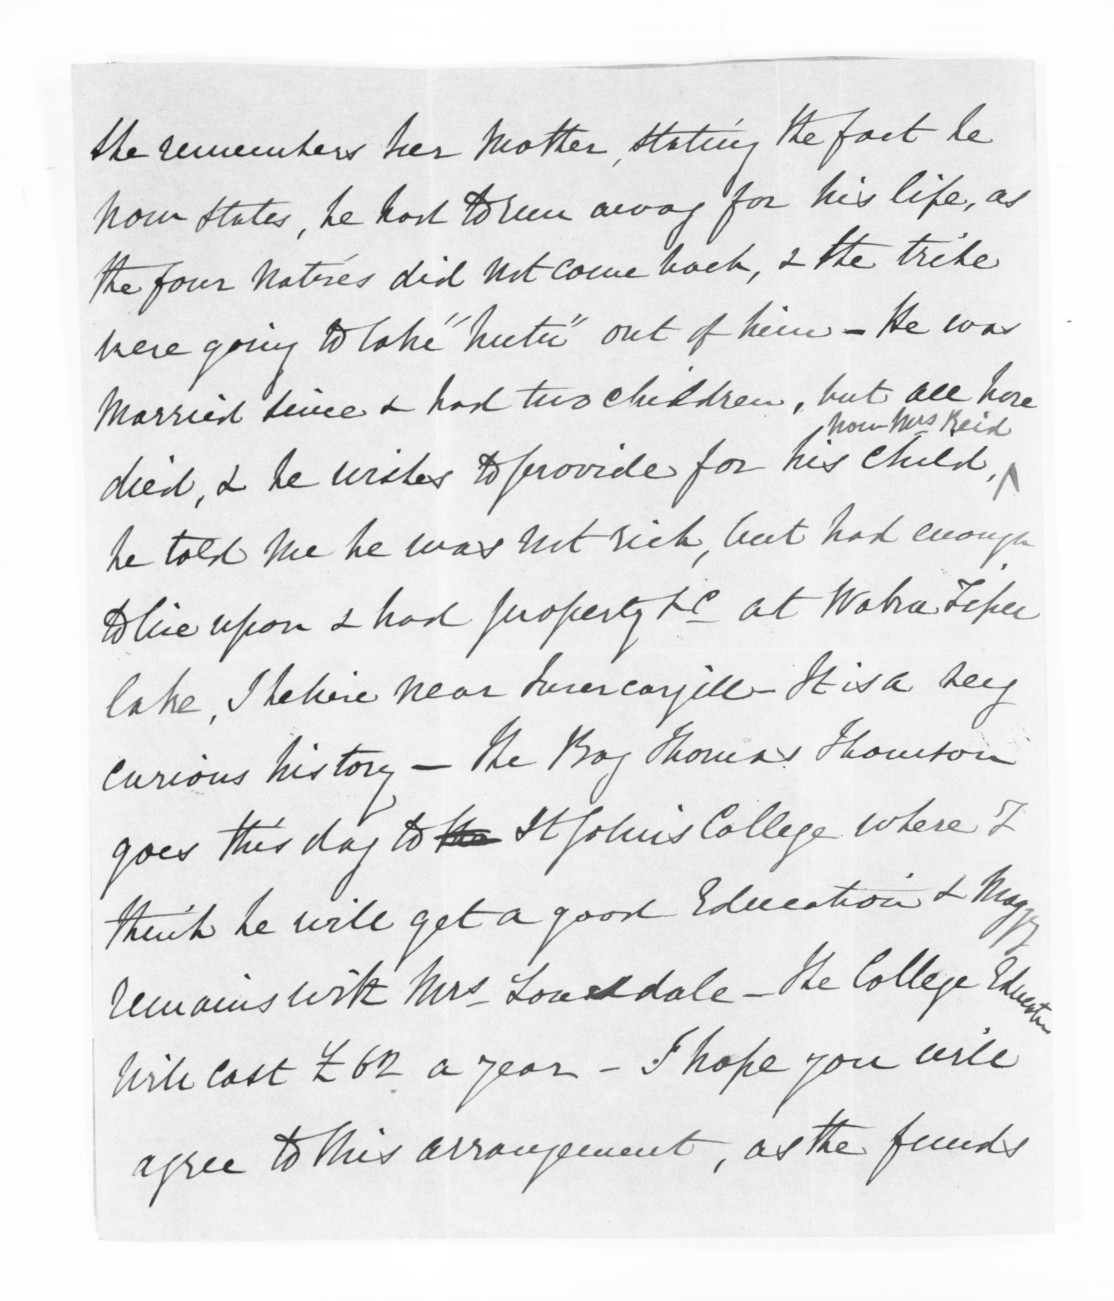 she remembers her Mother, stating the fact he
now states, he had to run away for his life, as
the four Natives did not come back, & the tribe
were going to take "hutu" out of him – He was
Married since & had two children, but all have
now Mrs Reid
died, & he wishes to provide for his child, ^
he told me he was not rich, but had enough
to live upon & had property &c at Waka Tipu
lake, I believe near Invercargill – It is a very
curious history – The Boy Thomas Thomson
goes this day to St John's College where I
think he will get a good Education & Maggy
remains with Mrs Lonsdale – The College Education
will cost £62 a year – I hope you will
agree to this arrangement, as the funds